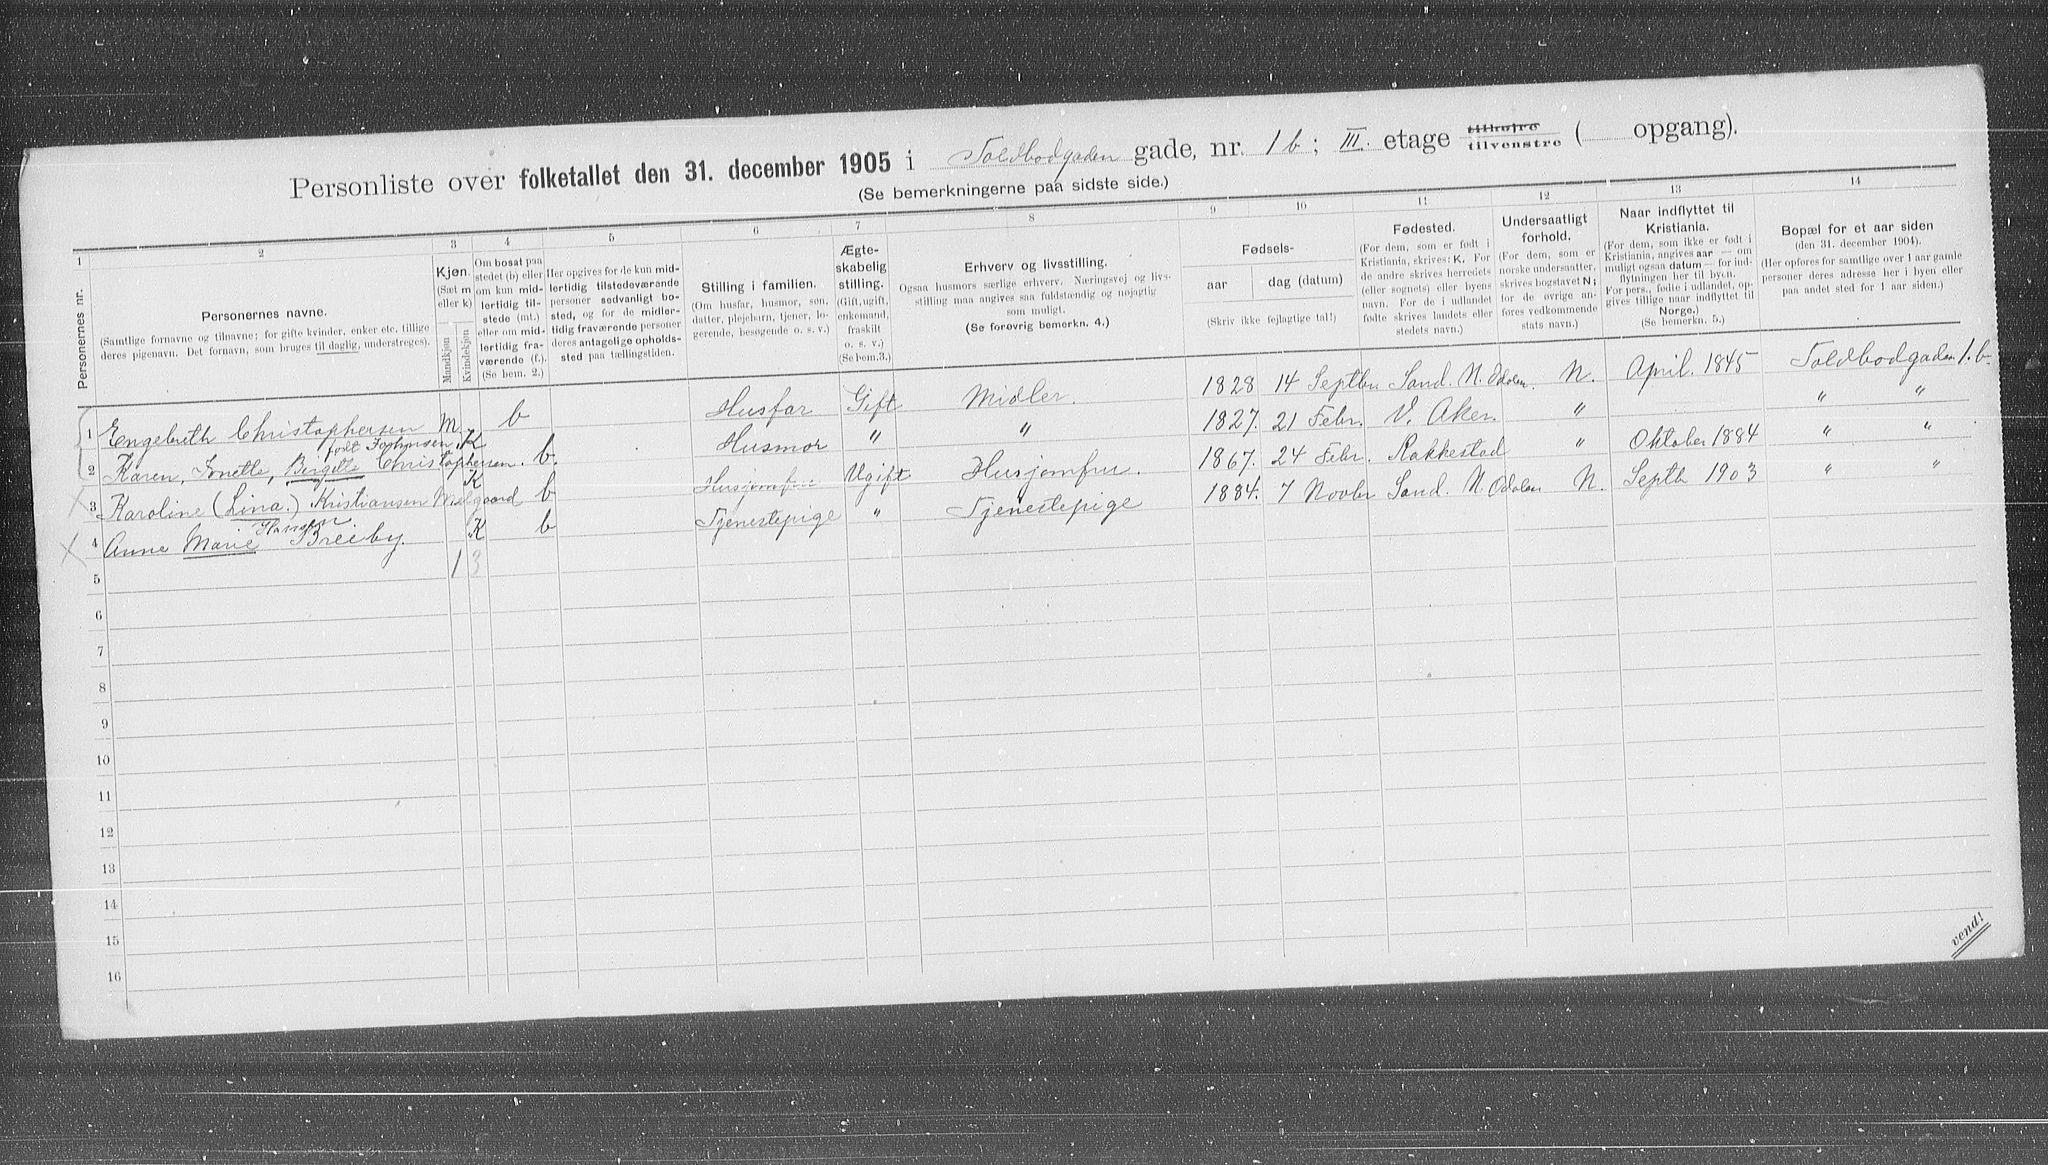 Personliste over folketallet den 31. december 1905 i Toldbodgaden gade, nr. 1 b; III. etage tilhøjre tilvenstre ( opgang).
(Se bemerkningerne paa sidste side.)
1 2 3 4 5 6 7 8 9 10 11 12 13 14
Personernes nr.
Personernes navne.
(Samtlige fornavne og tilnavne; for gifte kvinder, enker etc. tillige
deres pigenavn. Det fornavn, som bruges til daglig, understreges).
Kjøn.
(Sæt m
eller k)
Mandkjøn
Kvindekjøn
Om bosat paa
stedet (b) eller
om kun mid-
lertidig til-
stede (mt.)
eller om mid-
lertidig fra-
værende (f.).
(Se bem. 2.)
Her opgives for de kun mid-
lertidig tilstedeværende
personer sedvanligt bo-
sted, og for de midler-
tidig fraværende personer
deres antagelige opholds-
sted paa tællingstiden.
Stilling i familien.
(Om husfar, husmor, søn,
datter, plejebarn, tjener, lo-
gerende, besøgende o. s. v.)
Ægte-
skabelig
stilling.
(Gift, ugift,
enkemand,
fraskilt
o. s. v.)
(Se bem. 3.)
Erhverv og livsstilling.
Ogsaa husmors særlige erhverv. Næringsvej og livs-
stilling maa angives saa fuldstændig og nøjagtig
som muligt.
(Se forøvrig bemerkn. 4.)
Fødsels-
aar
dag (datum)
(Skriv ikke fejlagtige tal!)
Fødested.
(For dem, som er født i
Kristiania, skrives: K. For
de andre skrives herredets
(eller sognets) eller byens
navn. For de i udlandet
fødte skrives landets eller
stedets navn.)
Undersaatligt
forhold.
(For dem, som er
norske undersaatter,
skrives bogstavet N;
for de øvrige an-
føres vedkommende
stats navn.)
Naar indflyttet til
Kristiania.
(For dem, som ikke er født i
Kristiania, angives aar — om
muligt ogsaa datum — for ind-
flytningen her til byen.
For pers., fødte i udlandet, op-
gives tillige naar indflyttet til
Norge.)
(Se bemerkn. 5.)
Bopæl for et aar siden
(den 31. december 1904).
(Her opføres for samtlige over 1 aar gamle
personer deres adresse her i byen eller
paa andet sted for 1 aar siden.)
1 Engebreth Christophersen M. b Husfar Gift Midler. 1828 14 Septbr Sand. N. Odalen. N. April. 1845 Toldbodgaden 1. b
født
2 Karen, Ionette, Birgitte Christophersen. K b. Husmor " " 1827. 21 Febr. V. Aker. " " "
3 Karoline (Lina.) Kristiansen K b Husjomfru Ugift Husjomfru. 1867. 24 Febr. Rakkestad " Oktober 1884 " "
Hansen
4 Anne Marie Breeby. K b Tjenestepige " Tjenestepige 1884. 7 Novbr Sand. N. Odalen N. Septb 1903 " "
5 1 3
6
7
8
9
10
11
12
13
14
15
16
vend!